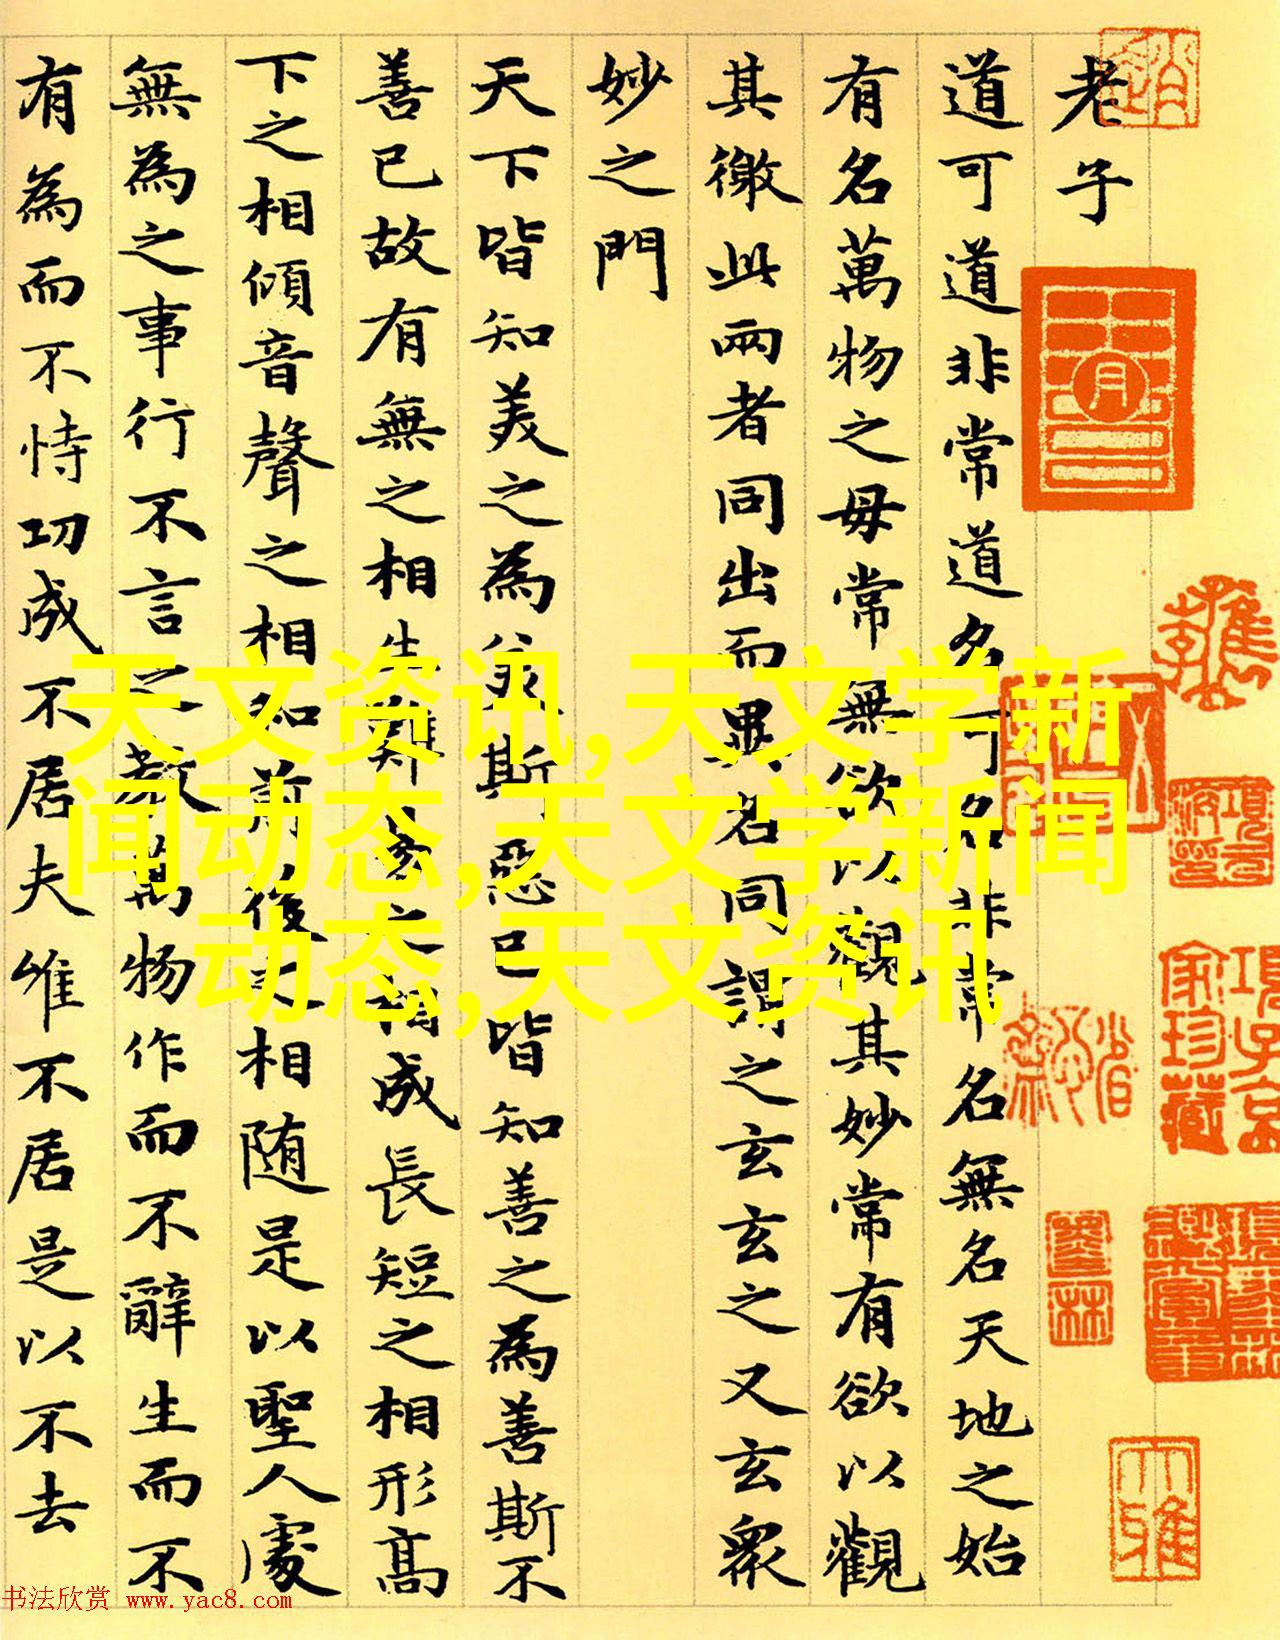 老子
道可道非常道名可名非常名無名天地之始
有名萬物之母常無欲以觀其妙常有欲以觀
其徼此兩者同出而異名同謂之玄玄之又玄衆
妙之門
天下皆知美之為美斯惡已皆知善之為善斯不
善已故有無之相生難易之相成長短之相形高
下之相傾音聲之相和前後之相随是以聖人處
無為之事行不言之教萬物作而不辭生而不
有為而不恃功成不居夫唯不居是以不去
天文资讯,天文学新
闻动态,天文学新闻
动态,天文资讯
项子京
家珍藏
大雅
书法欣赏 www.yac8.com